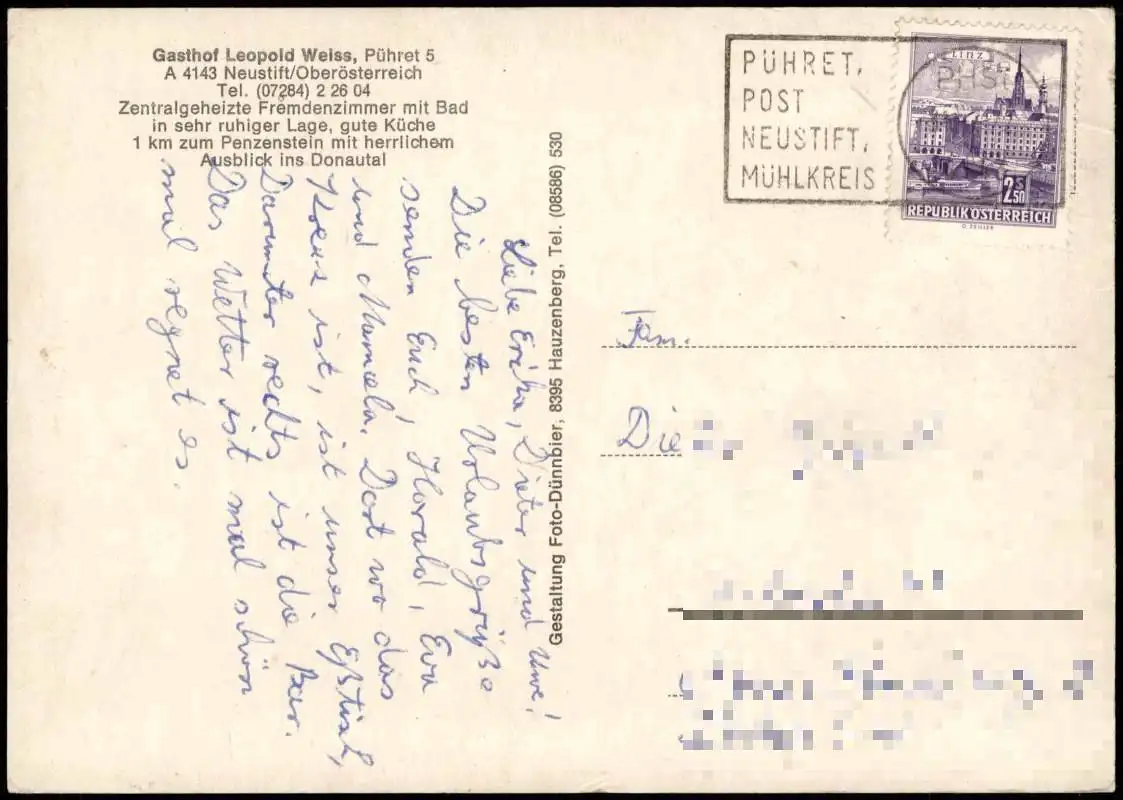 Gasthof Leopold Weiss, Pühret 5
A 4143 Neustift/Oberösterreich
Tel. (07284) 2 26 04
Zentralgeheizte Fremdenzimmer mit Bad
in sehr ruhiger Lage, gute Küche
1 km zum Penzenstein mit herrlichem
Ausblick ins Donautal
Liebe Erika, Dieter und Uwe!
Die besten Urlaubsgrüße
senden Euch, Harald, Eva
und Marcela. Dort wo das
Kreuz ist, ist unser Eßtisch,
Darunter rechts ist die Bar.
Das Wetter ist mal schön
mal regnet es.
Gestaltung Foto-Dünnbier, 8395 Hauzenberg, Tel. (08586) 530
PÜHRET,
POST
NEUSTIFT,
MÜHLKREIS
LINZ
2 S 50
REPUBLIK ÖSTERREICH
Fam.
Die